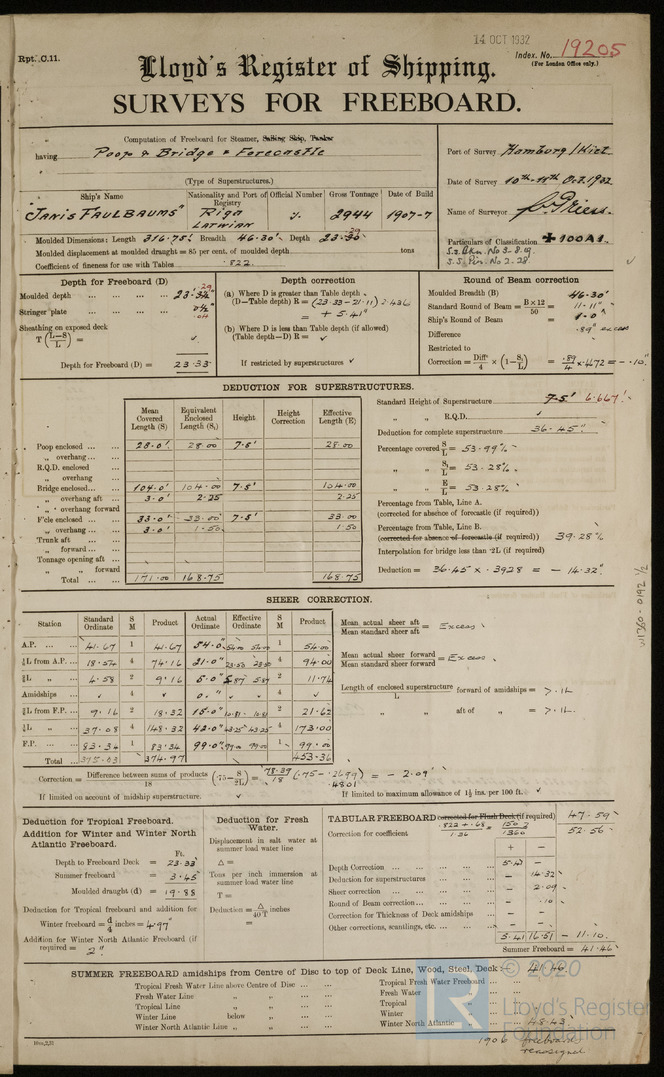 14 OCT 1932
Rpt. C.11.
Index. No. 19205
(For London Office only.)
Lloyd's Register of Shipping.
SURVEYS FOR FREEBOARD.
Computation of Freeboard for Steamer, Sailing Ship, Tanker
having Poop & Bridge & Forecastle
(Type of Superstructures.)
Port of Survey Hamburg / Kiel
Date of Survey 10th-11th Oct. 1932
Name of Surveyor
Particulars of Classification +100A1.
Ship's Name
Nationality and Port of Registry
Official Number
Gross Tonnage
Date of Build
"JANIS FAULBAUMS"
Riga
LATVIAN
2944
1907-7
Moulded Dimensions: Length 316.75' Breadth 46.30' Depth
Moulded displacement at moulded draught = 85 per cent. of moulded depth tons
Coefficient of fineness for use with Tables .822
Depth for Freeboard (D)
Moulded depth
Stringer plate
Sheathing on exposed deck
T (L-S/L) =
Depth for Freeboard (D) = 23.33
Depth correction
(a) Where D is greater than Table depth
(D-Table depth) R = (23.33-21.11) 2.436
= + 5.41"
(b) Where D is less than Table depth (if allowed)
(Table depth-D) R = ✓
If restricted by superstructures ✓
Round of Beam correction
Moulded Breadth (B) 46.30'
Standard Round of Beam = B×12/50 = 11.11"
Ship's Round of Beam = 1.0'
Difference .89" excess
Restricted to
Correction = Diff/4 × (1-S₁/L) = .89/4 × .4672 = -.10"
DEDUCTION FOR SUPERSTRUCTURES.
Mean Covered Length (S)
Equivalent Enclosed Length (S₁)
Height
Height Correction
Effective Length (E)
Poop enclosed 28.0' 28.00 7.5' 28.00
„ overhang
R.Q.D. enclosed
„ overhang
Bridge enclosed 104.0' 104.00 7.5' 104.00
„ overhang aft 3.0' 2.25 2.25
„ overhang forward
F'cle enclosed 33.0' 33.00 7.5' 33.00
„ overhang 3.0' 1.50 1.50
Trunk aft
„ forward
Tonnage opening aft
„ „ forward
Total 171.00 168.75 168.75
Standard Height of Superstructure 7.5' 6.667'
„ „ R.Q.D. ✓
Deduction for complete superstructure 36.45"
Percentage covered S/L = 53.99%
„ „ S₁/L = 53.28%
„ „ E/L = 53.28%
Percentage from Table, Line A.
(corrected for absence of forecastle (if required))
Percentage from Table, Line B. 39.28%
(corrected for absence of forecastle (if required))
Interpolation for bridge less than ·2L (if required)
Deduction = 36.45 × .3928 = -14.32"
SHEER CORRECTION.
Station
Standard Ordinate
S M
Product
Actual Ordinate
Effective Ordinate
S M
Product
A.P. 41.67 1 41.67 54.0" 54.00 54.00 1 54.00
⅙L from A.P. 18.54 4 74.16 21.0" 23.50 23.50 4 94.00
⅓L „ 4.58 2 9.16 5.0" 5.87 5.87 2 11.74
Amidships ✓ 4 ✓ 0." ✓ ✓ 4 ✓
⅓L from F.P. 9.16 2 18.32 15.0" 10.81 10.81 2 21.62
⅙L „ 37.08 4 148.32 42.0" 43.25 43.25 4 173.00
F.P. 83.34 1 83.34 99.0" 99.00 99.00 1 99.00
Total 375.03 374.97 453.36
Mean actual sheer aft / Mean standard sheer aft = Excess
Mean actual sheer forward / Mean standard sheer forward = Excess
Length of enclosed superstructure / L forward of amidships = >.1L
„ „ aft of „ = >.1L
Correction = Difference between sums of products / 18 (·75 - S/2L) = 78.39/18 (.75-.2699) = - 2.09"
.4801
If limited on account of midship superstructure. ✓
If limited to maximum allowance of 1½ ins. per 100 ft. ✓
Deduction for Tropical Freeboard.
Addition for Winter and Winter North Atlantic Freeboard.
Ft.
Depth to Freeboard Deck = 23.33
Summer freeboard = 3.45
Moulded draught (d) = 19.88
Deduction for Tropical freeboard and addition for
Winter freeboard = d/4 inches = 4.97"
Addition for Winter North Atlantic Freeboard (if required = 2"
Deduction for Fresh Water.
Displacement in salt water at summer load water line
Δ =
Tons per inch immersion at summer load water line
T =
Deduction = Δ/40T inches
=
TABULAR FREEBOARD corrected for Flush Deck (if required) 47.59
Correction for coefficient .822+.68/1.36 = 1502/1360 52.56
+ -
Depth Correction 5.41 -
Deduction for superstructures - 14.32
Sheer correction - 2.09
Round of Beam correction - .10
Correction for Thickness of Deck amidships - -
Other corrections, scantlings, etc. - -
5.41 16.51 - 11.10
Summer Freeboard = 41.46
SUMMER FREEBOARD amidships from Centre of Disc to top of Deck Line, Wood, Steel, Deck:— 41.46
Tropical Fresh Water Line above Centre of Disc
Fresh Water Line „ „
Tropical Line „ „
Winter Line below „
Winter North Atlantic Line „ „
Tropical Fresh Water Freeboard
Fresh Water „
Tropical „
Winter „
Winter North Atlantic „ 48.43
1906 freeboard
reassigned
W1360-0192 1/2
© 2020
Lloyd's Register
Foundation